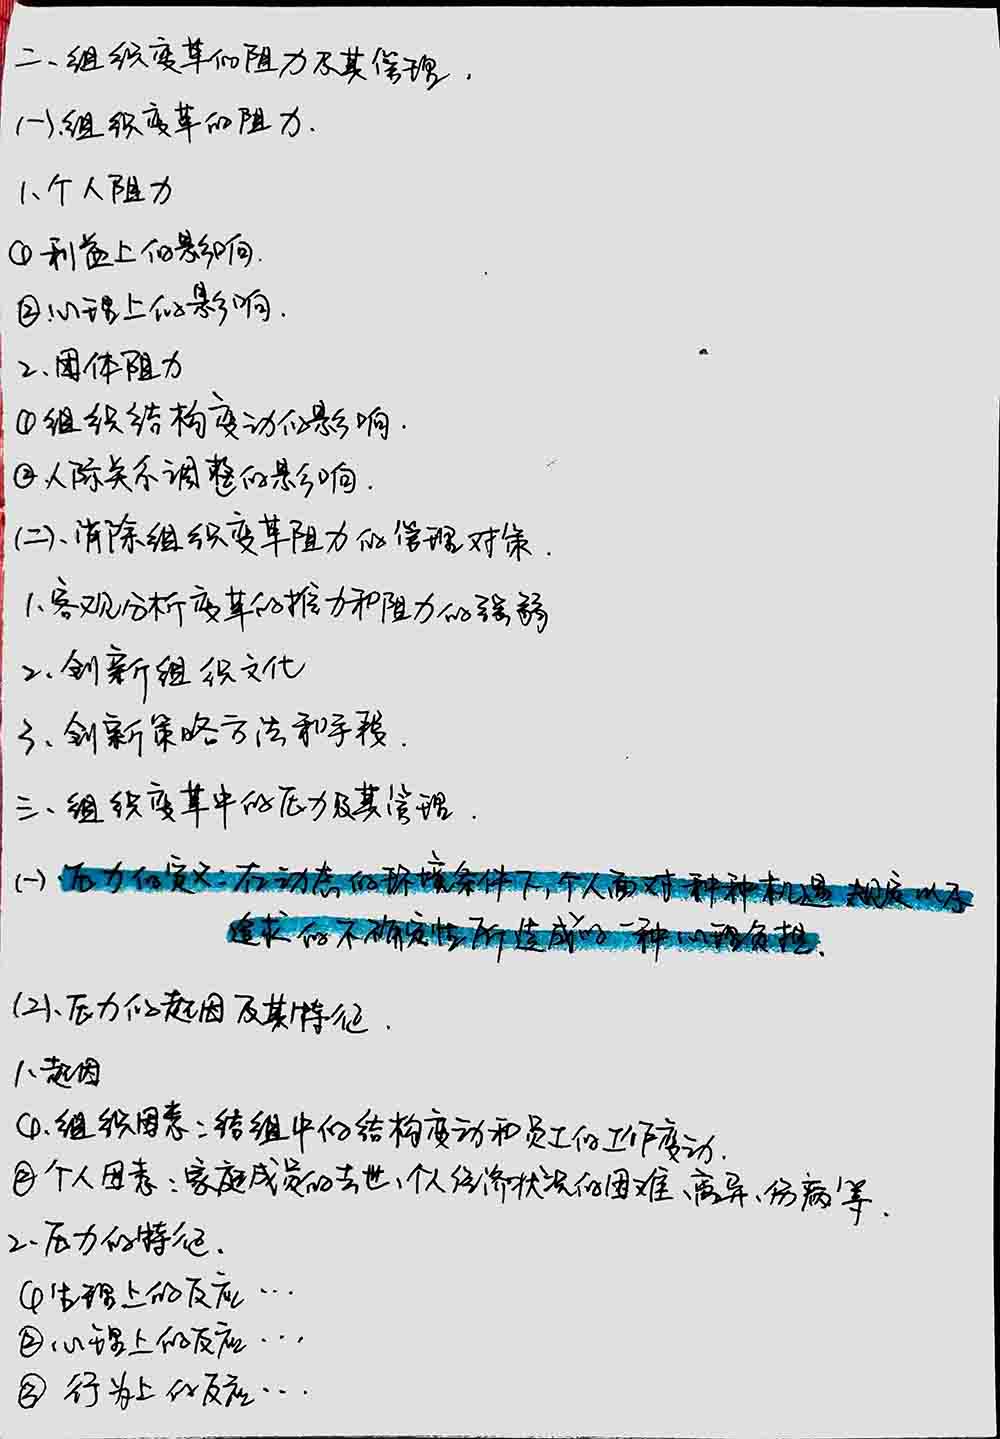 二、组织变革的阻力及其管理.
(一).组织变革的阻力.
1、个人阻力
①利益上的影响.
②心理上的影响.
2、团体阻力
①组织结构变动的影响.
②人际关系调整的影响.
(二)、消除组织变革阻力的管理对策.
1.客观分析变革的推力和阻力的强弱
2、创新组织文化
3、创新策略方法和手段.
三、组织变革中的压力及其管理.
(一)压力的定义:在动态的环境条件下,个人面对种种机遇 规定以及
追求的不确定性所造成的一种心理负担.
(2)、压力的起因及其特征.
1、起因
①.组织因素:结组中的结构变动和员工的工作变动.
②个人因素:家庭成员的去世、个人经济状况的困难、离异、伤病等.
2、压力的特征.
①生理上的反应…
②心理上的反应…
③ 行为上的反应…